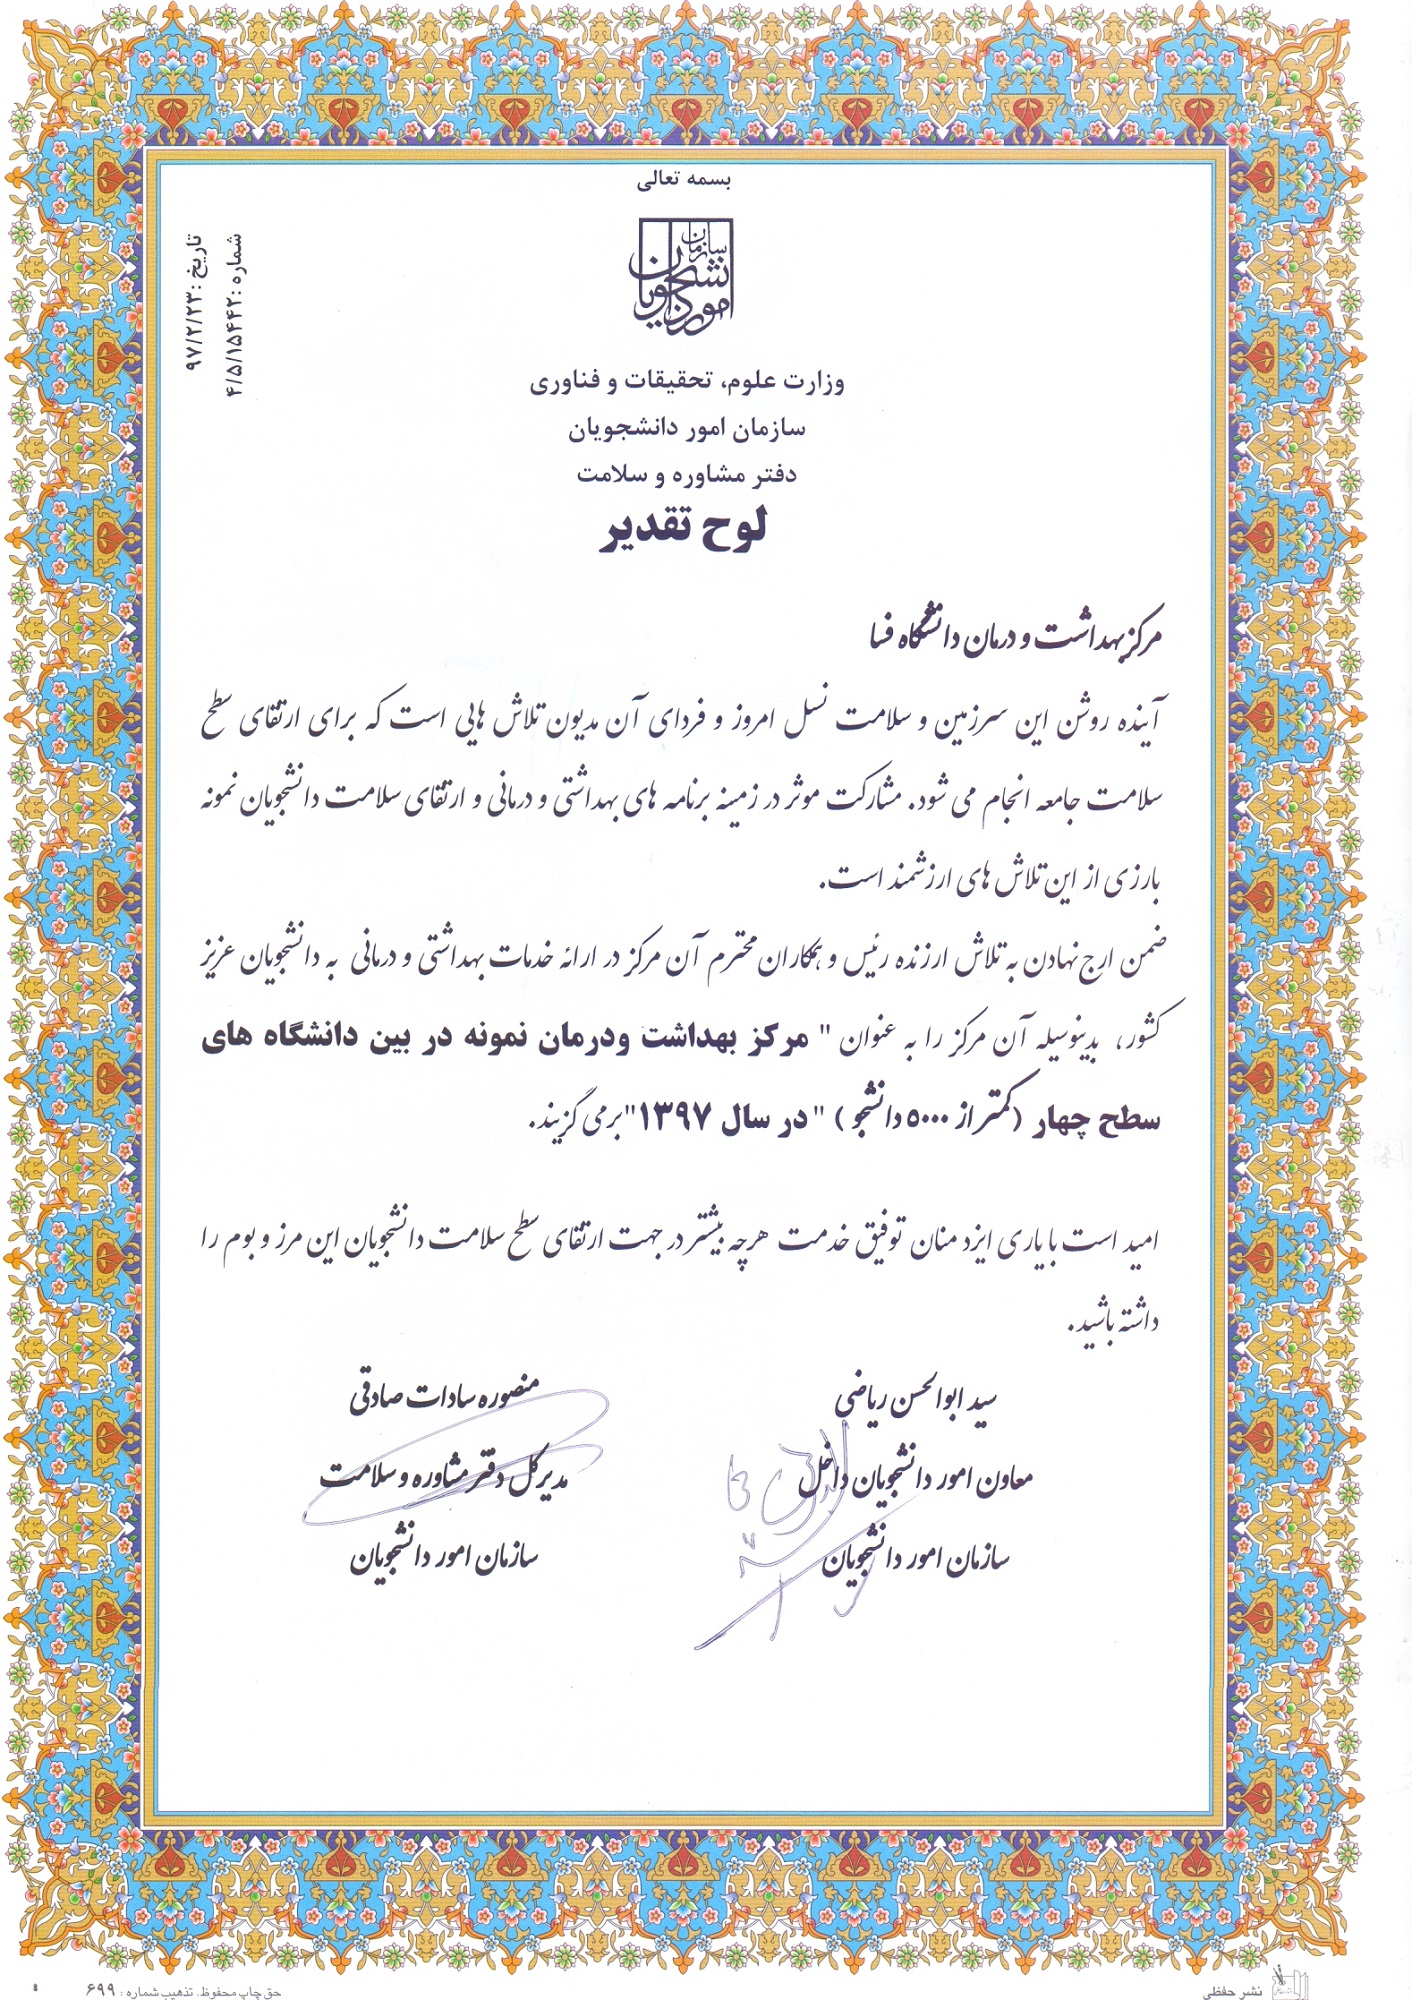 بسمه تعالی
سازمان امور دانشجویان
تاریخ : ۹۷/۲/۲۳
شماره :۴/۵/۱۵۴۴۲
وزارت علوم، تحقیقات و فناوری
سازمان امور دانشجویان
دفتر مشاوره و سلامت
لوح تقدیر
مرکز بهداشت و درمان دانشگاه فسا
آینده روشن این سرزمین و سلامت نسل امروز و فردای آن مدیون تلاش هایی است که برای ارتقای سطح
سلامت جامعه انجام می شود. مشارکت موثر در زمینه برنامه های بهداشتی و درمانی و ارتقای سلامت دانشجویان نمونه
بارزی از این تلاش های ارزشمند است.
ضمن ارج نهادن به تلاش ارزنده رئیس و همکاران محترم آن مرکز در ارائه خدمات بهداشتی و درمانی به دانشجویان عزیز
کشور، بدینوسیله آن مرکز را به عنوان " مرکز بهداشت ودرمان نمونه در بین دانشگاه های
سطح چهار (کمتر از ۵۰۰۰ دانشجو ) " در سال ۱۳۹۷"برمی گزیند.
امید است با یاری ایزد منان توفیق خدمت هرچه بیشتر در جهت ارتقای سطح سلامت دانشجویان این مرز و بوم را
داشته باشید.
سید ابوالحسن ریاضی
معاون امور دانشجویان داخل
سازمان امور دانشجویان
منصوره سادات صادقی
مدیرکل دفتر مشاوره و سلامت
سازمان امور دانشجویان
نشر حفظی
حق چاپ محفوظ. تذهیب شماره : ۶۹۹